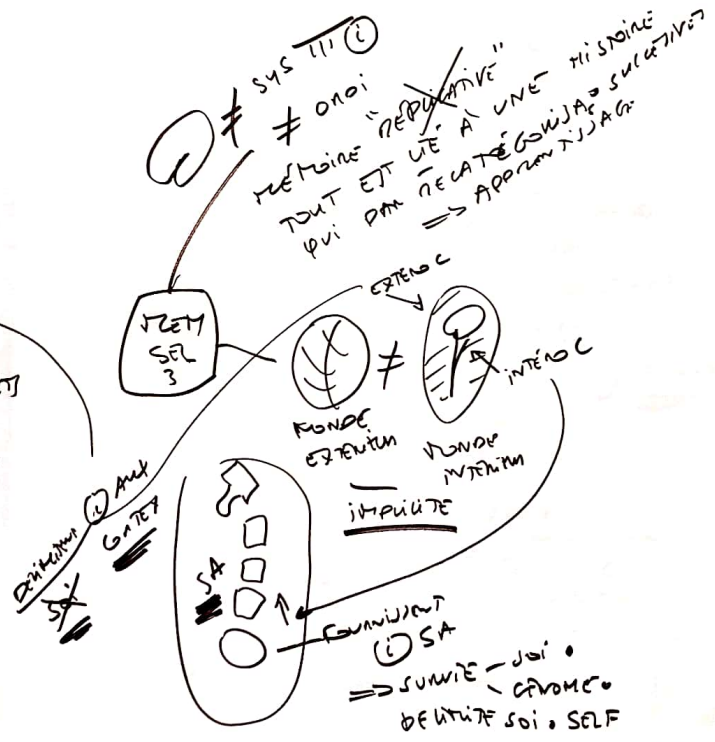 ≠ SYS III i
≠ ORDI
MÉMOIRE "RÉPLICATIVE"
TOUT EST LIÉ À UNE HISTOIRE
QUI PAR RECATÉGORISA° SUCCESSIVES
=> APPRENTISSAGE
MEM
SEL
3
EXTÉRO C
≠
INTÉRO C
MONDE
EXTÉRIEUR
MONDE
INTÉRIEUR
IMPLICITE
i AUX
CORTEX
DÉLIMITANT
SOI
SA
FOURNISSANT
i SA
=> SURVIE - SOI
- GÉNOME
DÉLIMITE SOI. SELF